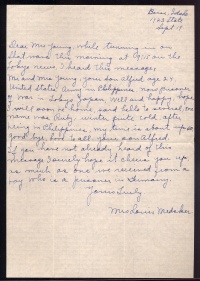 Boise, Idaho
1703 State
Sept 19
Dear Mrs Young while tuning in on
short wave this morning at 9:15 on the
Tokyo news, I heard this message
Mr and Mrs Young, your son Alfred age 24
United States Army in Philippines now prisoner
of war in Tokyo Japan, Well and happy, hope
I will soon be home and hello to
name was Ruby, winter quite cold after
being in Philippines, my time is about up so
good bye, love to all, your son Alfred
If you have not already heard of this
message I surely hope it cheers you up
as much as one we received from a
boy who is a prisoner in Germany
Yours truly
Mrs Louis Medaker